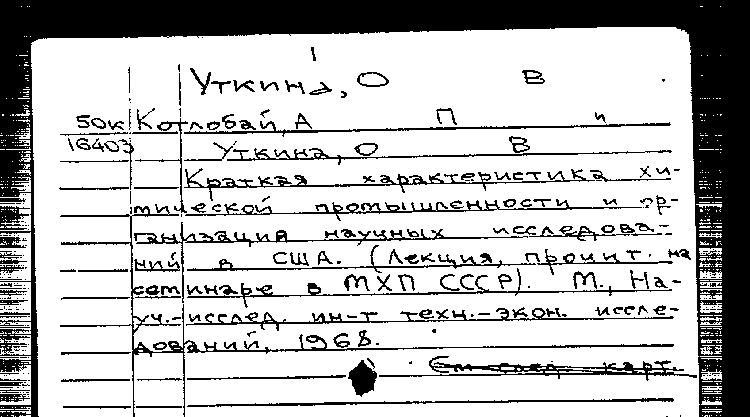 1
Уткина, О В
50к Котлобай, А П и
16403 Уткина, О В
Краткая характеристика хи-
мической промышленности и ор-
ганизация научных исследова-
ний в США. (Лекция, прочит. на
семинаре в МХП СССР). М., На-
уч.-исслед. ин-т техн.-экон. иссле-
дований, 1968.
См след. карт.